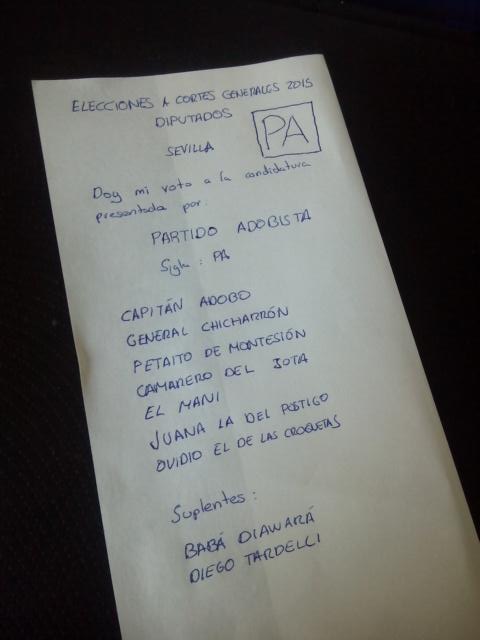 ELECCIONES A CORTES GENERALES 2015
DIPUTADOS
PA
SEVILLA
Doy mi voto a la candidatura
presentada por:
PARTIDO ADOBISTA
Sigla: PA
CAPITÁN ADOBO
GENERAL CHICHARRÓN
PETAITO DE MONTESIÓN
CAMARERO DEL JOTA
EL MANI
JUANA LA DEL POSTIGO
OVIDIO EL DE LAS CROQUETAS
Suplentes:
BABÁ DIAWARÁ
DIEGO TARDELLI